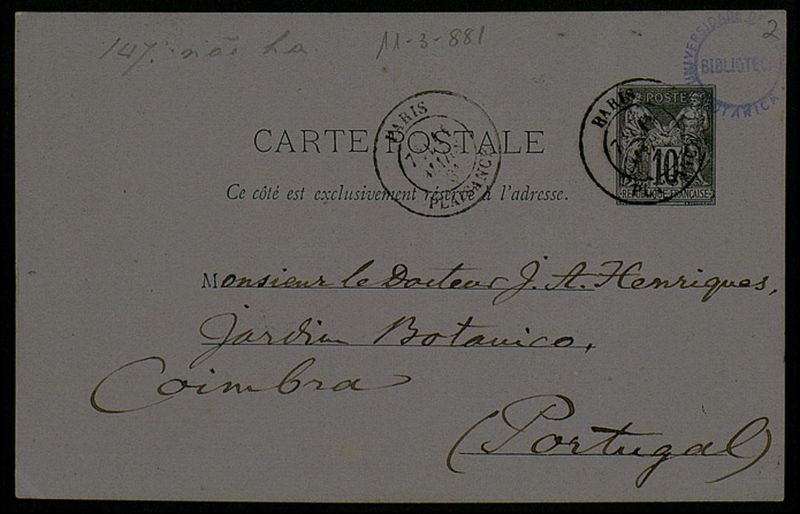 147. não ha.
11-3-881
2
UNIVERSIDADE
BIBLIOTECA
BOTANICA
POSTE
10
REPUBLIQUE FRANÇAISE
PARIS
PLAISANCE
PARIS
CARTE POSTALE
Ce côté est exclusivement réservé à l'adresse.
Monsieur le Docteur J. A. Henriques,
Jardim Botanico,
Coimbra
(Portugal)